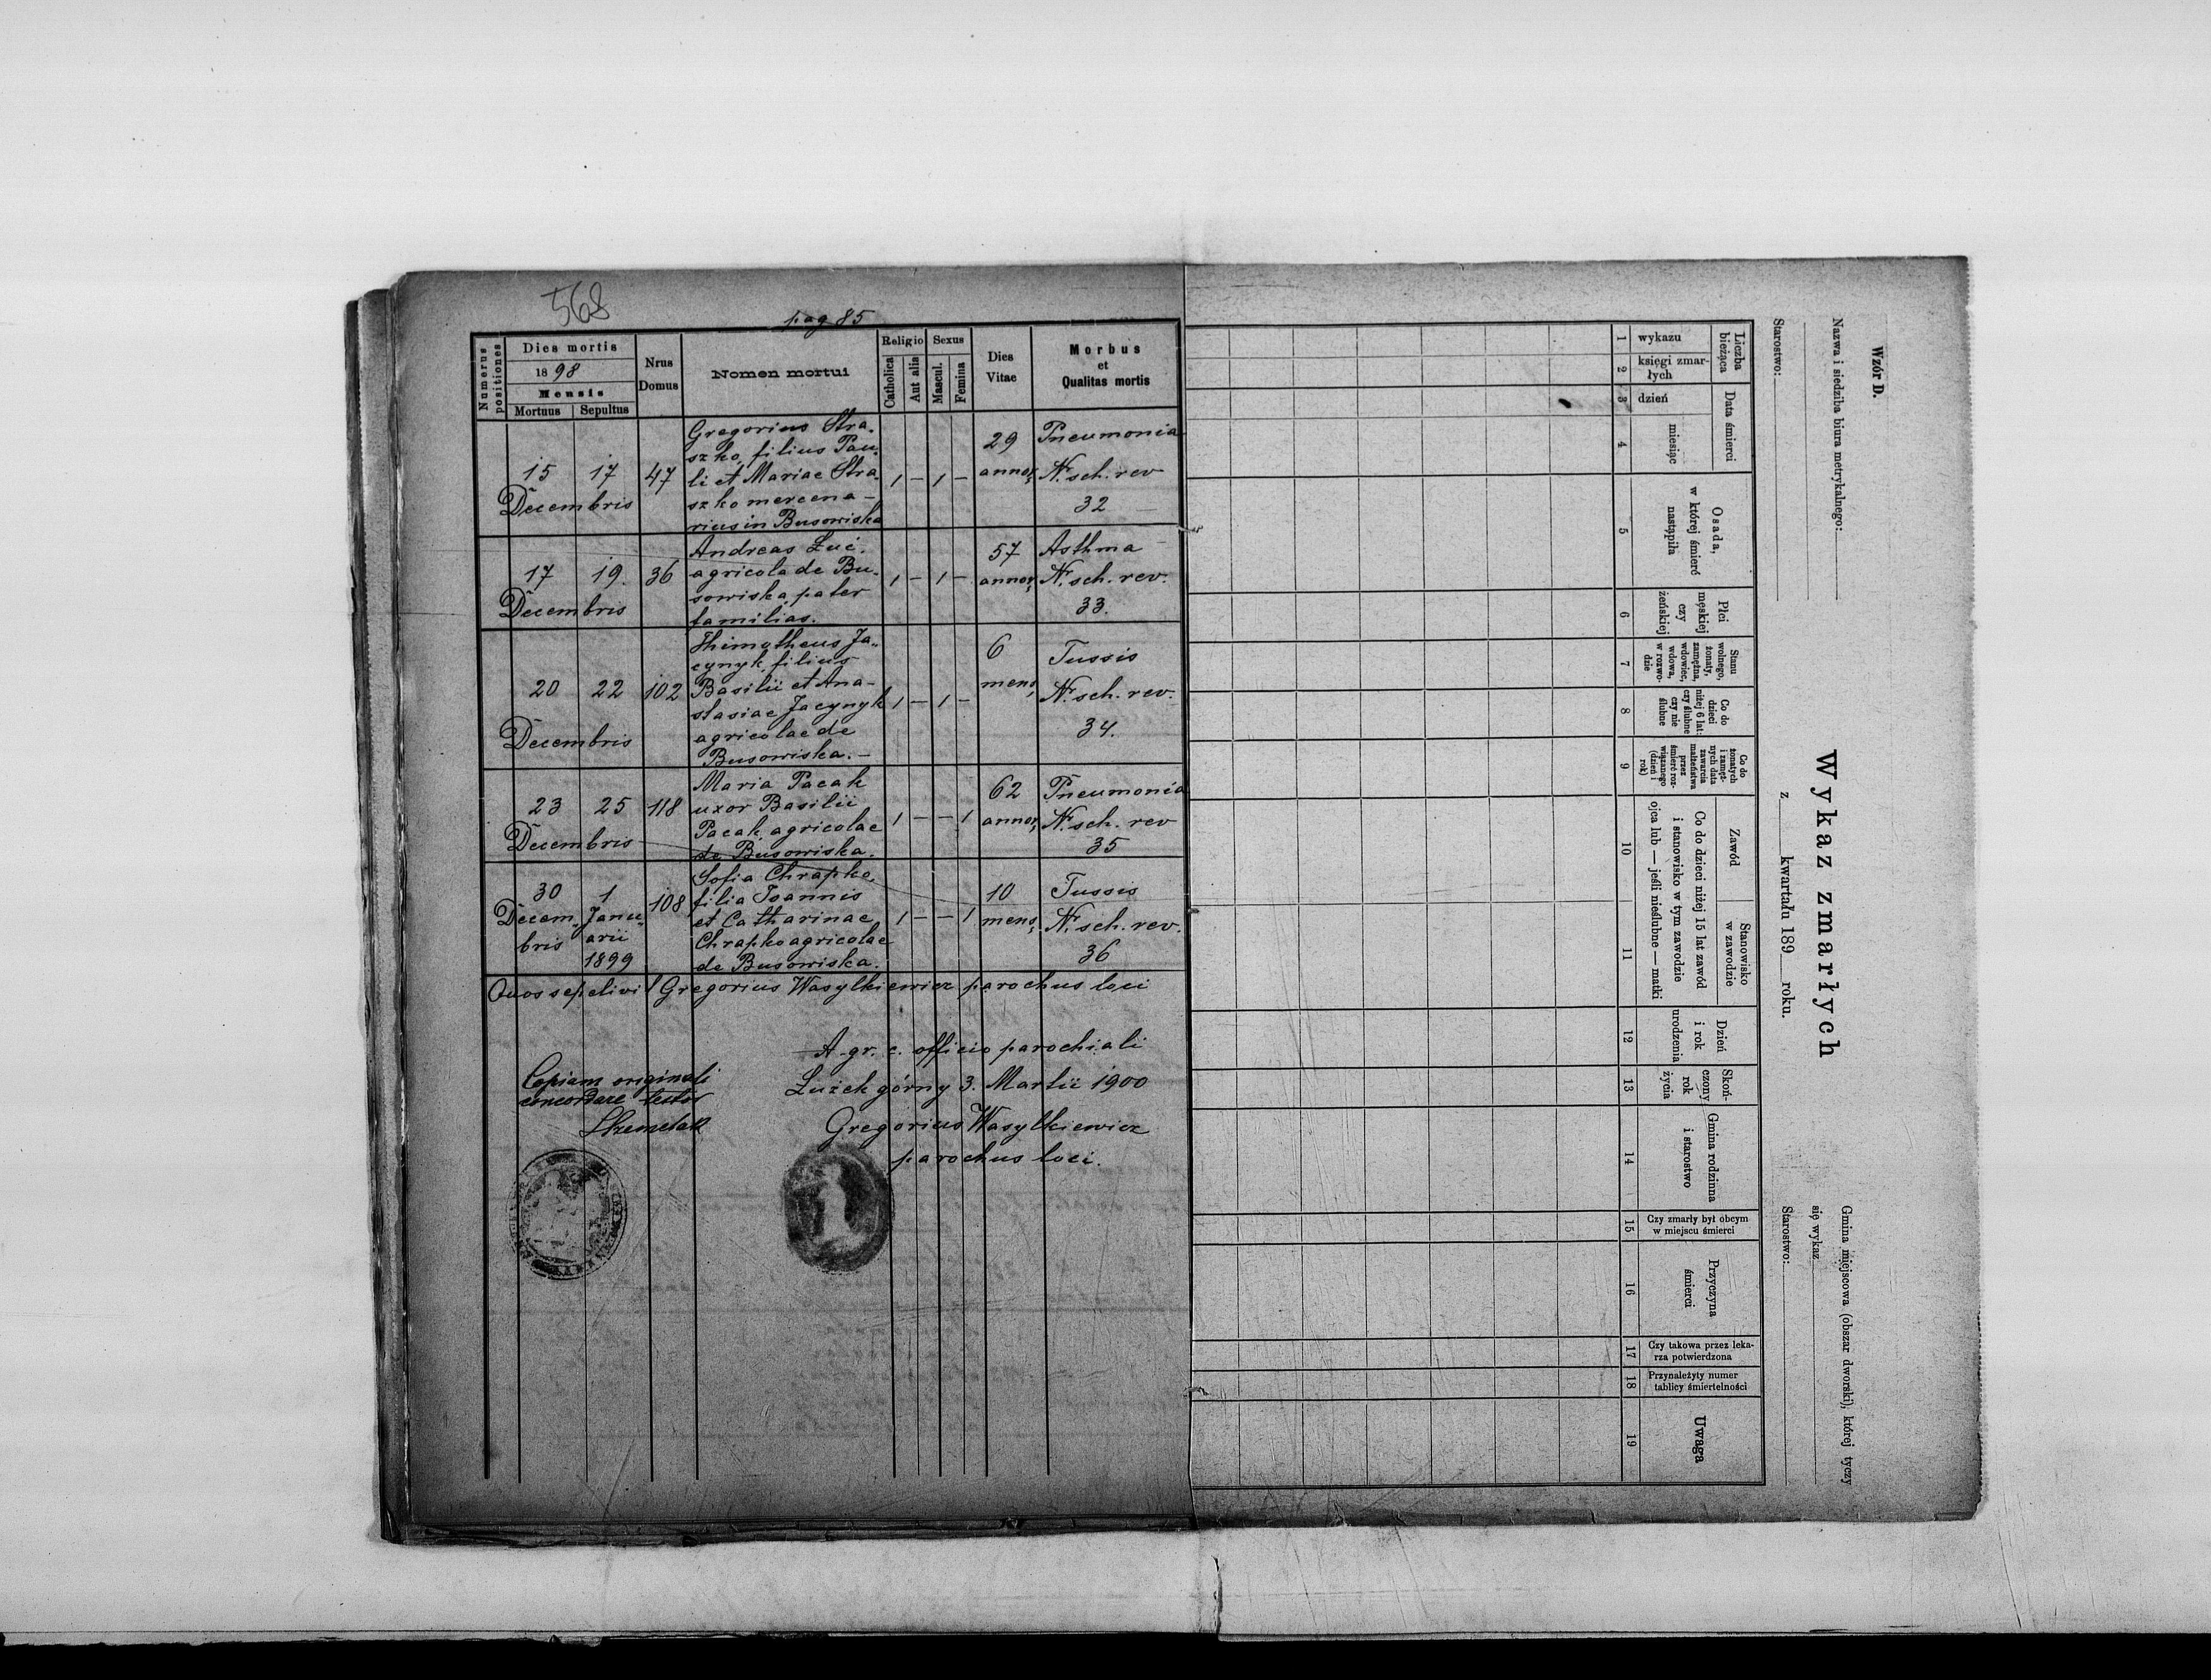 568
pag 85
Numerus positiones
Dies mortis
1898
Mensis
Mortuus Sepultus
Nrus Domus
Nomen mortui
Religio
Catholica
Aut alia
Sexus
Mascul.
Femina
Dies Vitae
Morbus
et
Qualitas mortis
15 17
Decembris
47
Gregorius Stra-
szko, filius Pau-
li et Mariae Stra-
szko mercena-
rius in Busowiska
1 — 1 —
29
annor,
Pneumonia
N. sch. rev
32
17 19.
Decembris
36
Andreas Łuć.
agricola de Bu-
sowiska, pater
familias.
1 — 1 —
57
annor,
Asthma
N. sch. rev.
33.
20 22
Decembris
102
Thimotheus Ja„
cynyk, filius
Basilii et Ana-
stasiae Jacynyk
agricolae de
Busowiska. —
1 — 1 —
6
mens,
Tussis
N. sch. rev.
34.
23 25
Decembris
118
Maria Pacak
uxor Basilii
Pacak, agricolae
de Busowiska.
1 — — 1
62
annor,
Pneumonia
N. sch. rev
35
30 1
Decem- Janu„
bris arii
1899
108
Sofia Chrapko,
filia Joannis
et Catharinae
Chrapko agricolae
de Busowiska.
1 — — 1
10
mens,
Tussis
N. sch. rev.
36
Quos sepelivit Gregorius Wasylkiewicz parochus loci
A gr. c. officio parochiali
Łużek górny 3. Martii 1900
Gregorius Wasylkiewicz
parochus loci.
Copiam originali
concordare testor
Wzór D.
Nazwa i siedziba biura metrykalnego:
Starostwo:
Wykaz zmarłych
z kwartału 189 roku.
Gmina miejscowa (obszar dworski), której tyczy
się wykaz
Starostwo:
Liczba bieżąca
wykazu
księgi zmar-
łych
Data śmierci
dzień
miesiąc
Osada,
w której śmierć
nastąpiła
Płci
męskiej
czy
żeńskiej
Stanu
wolnego,
żonaty,
zamężna,
wdowiec,
wdowa,
w rozwo-
dzie
Co do
dzieci
niżej 6 lat:
czy ślubne
czy nie
ślubne
Co do
żonatych
i zamęż-
nych data
zawarcia
małżeństwa
przez
śmierć roz-
wiązanego
(dzień i
rok)
Zawód
Stanowisko
w zawodzie
Co do dzieci niżej 15 lat zawód
i stanowisko w tym zawodzie
ojca lub — jeśli nieślubne — matki
Dzień
i rok
urodzenia
Skoń-
czony
rok
życia
Gmina rodzinna
i starostwo
Czy zmarły był obcym
w miejscu śmierci
Przyczyna
śmierci
Czy takowa przez leka-
rza potwierdzona
Przynależyty numer
tablicy śmiertelności
Uwaga
1 2 3 4 5 6 7 8 9 10 11 12 13 14 15 16 17 18 19